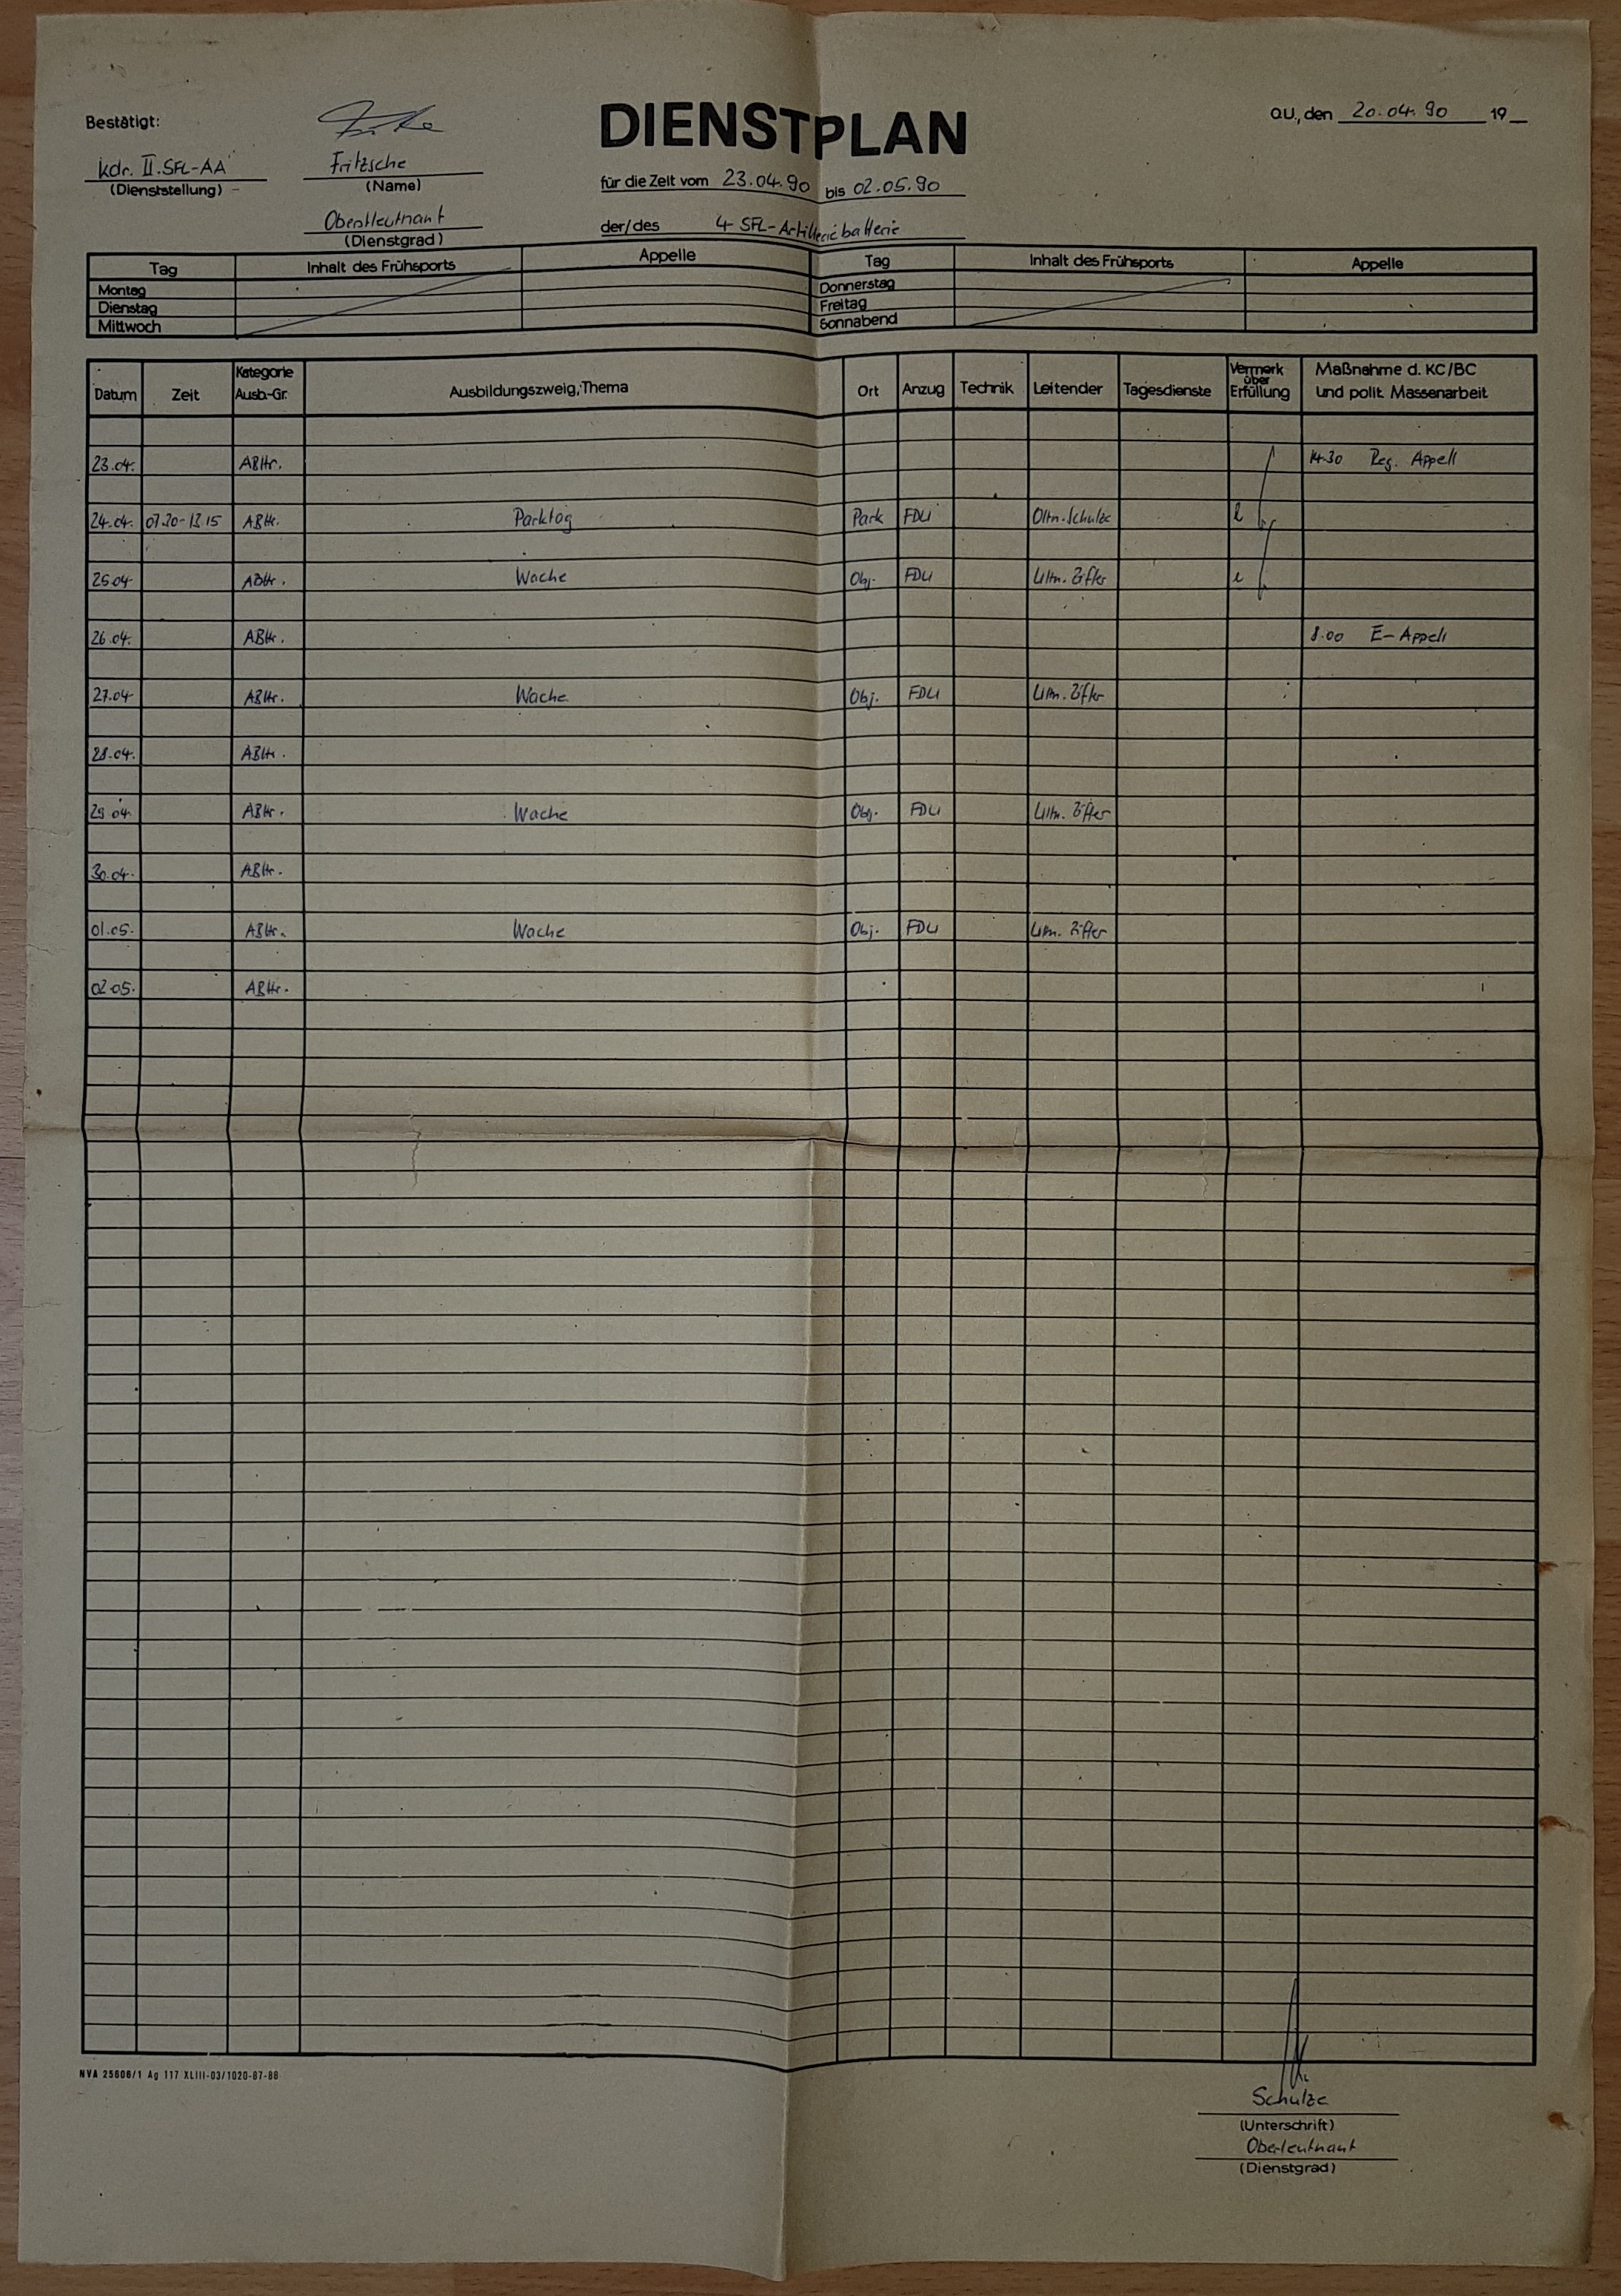 Bestätigt:
DIENSTPLAN
O.U., den 20.04.90 19
Kdr. II. SFL-AA
(Dienststellung)
Fritzsche
(Name)
für die Zeit vom 23.04.90 bis 02.05.90
Oberstleutnant
(Dienstgrad)
der/des 4 SFL-Artilleriebatterie
Tag Inhalt des Frühsports Appelle Tag Inhalt des Frühsports Appelle
Montag Donnerstag
Dienstag Freitag
Mittwoch Sonnabend
Datum Zeit Kategorie Ausb.-Gr. Ausbildungszweig, Thema Ort Anzug Technik Leitender Tagesdienste Vermerk über Erfüllung Maßnahme d. KC/BC und polit. Massenarbeit
23.04. ABttr. 14.30 Reg. Appell
24.04. ABttr. Parktag Park FDU Oltn. Schulze
25.04 ABttr. Wache Obj. FDU Ultn. Zifter
26.04. ABttr. 8.00 E-Appell
27.04 ABttr. Wache Obj. FDU Ultn. Zifter
28.04. ABttr.
29.04. ABttr. Wache Obj. FDU Ultn. Zifter
30.04. ABttr.
01.05. ABttr. Wache Obj. FDU Ultn. Zifter
02.05. ABttr.
NVA 25606/1 Ag 117 XLIII-03/1020-87-88
Schulze
(Unterschrift)
Oberleutnant
(Dienstgrad)